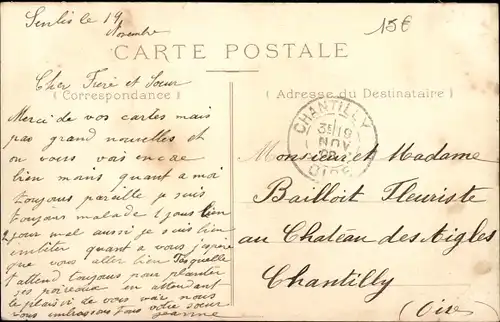 Senlis le 19
Novembre
15€
CARTE POSTALE
Cher Frere et Soeur
(Correspondance)
(Adresse du Destinataire)
CHANTILLY
19
NOV
OISE
Merci de vos cartes mais
pas grand nouvelles et
on vous vais encae
bien moins quant a moi
toujours pareille je suis
toujours malade 2 jours bien
2 pour mal aussi je suis bien
quant a vous j'espere
que vous aller bien Pasquelle
t'attend toujours pour planter
ses poireaux en attendant
le plaisir de vous voir nous
vous embrassons tous votre soeur
Jeanne
Monsieur et Madame
Bailloit Fleuriste
au Château des Aigles
Chantilly
(Oise)